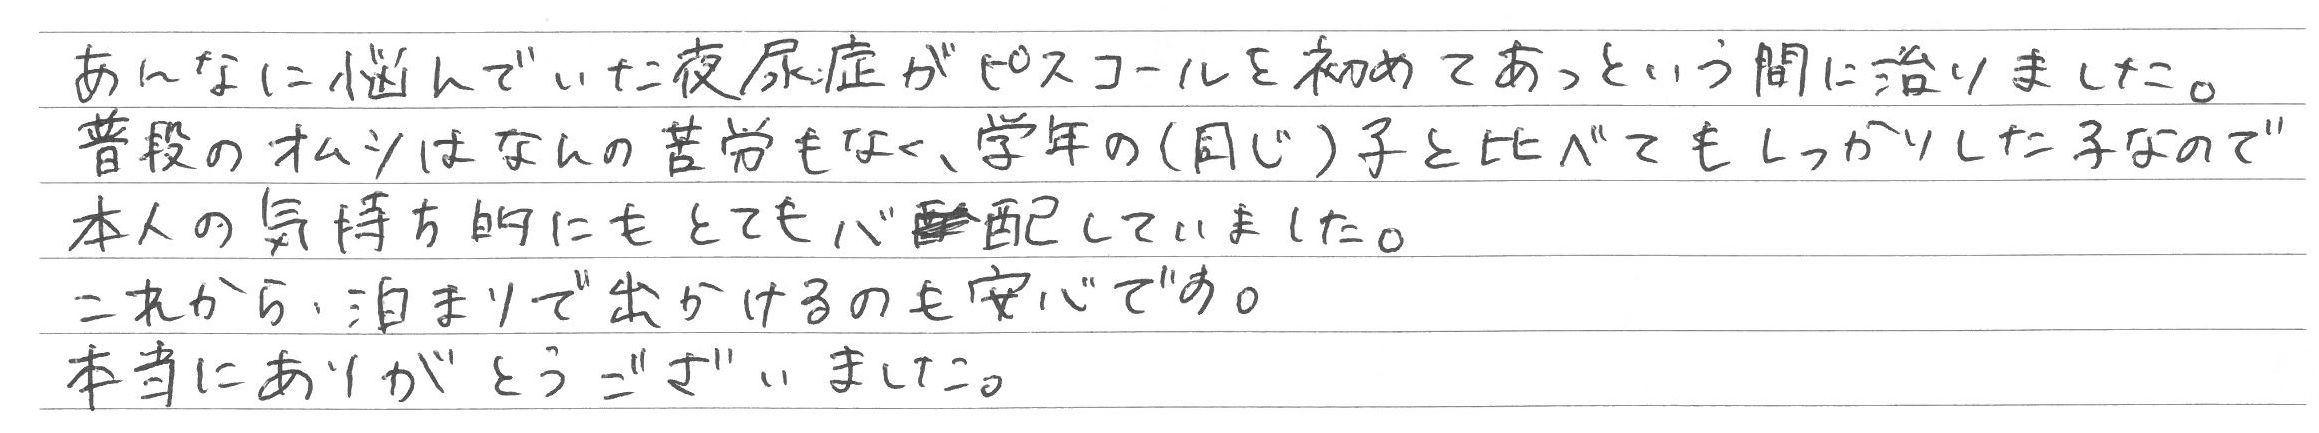 あんなに悩んでいた夜尿症がピスコールを初めてあっという間に治りました。
普段のオムシはなんの苦労もなく、学年の(同じ)子と比べてもしっかりした子なので
本人の気持ち的にもとても心配していました。
これから、泊まりで出かけるのも安心です。
本当にありがとうございました。